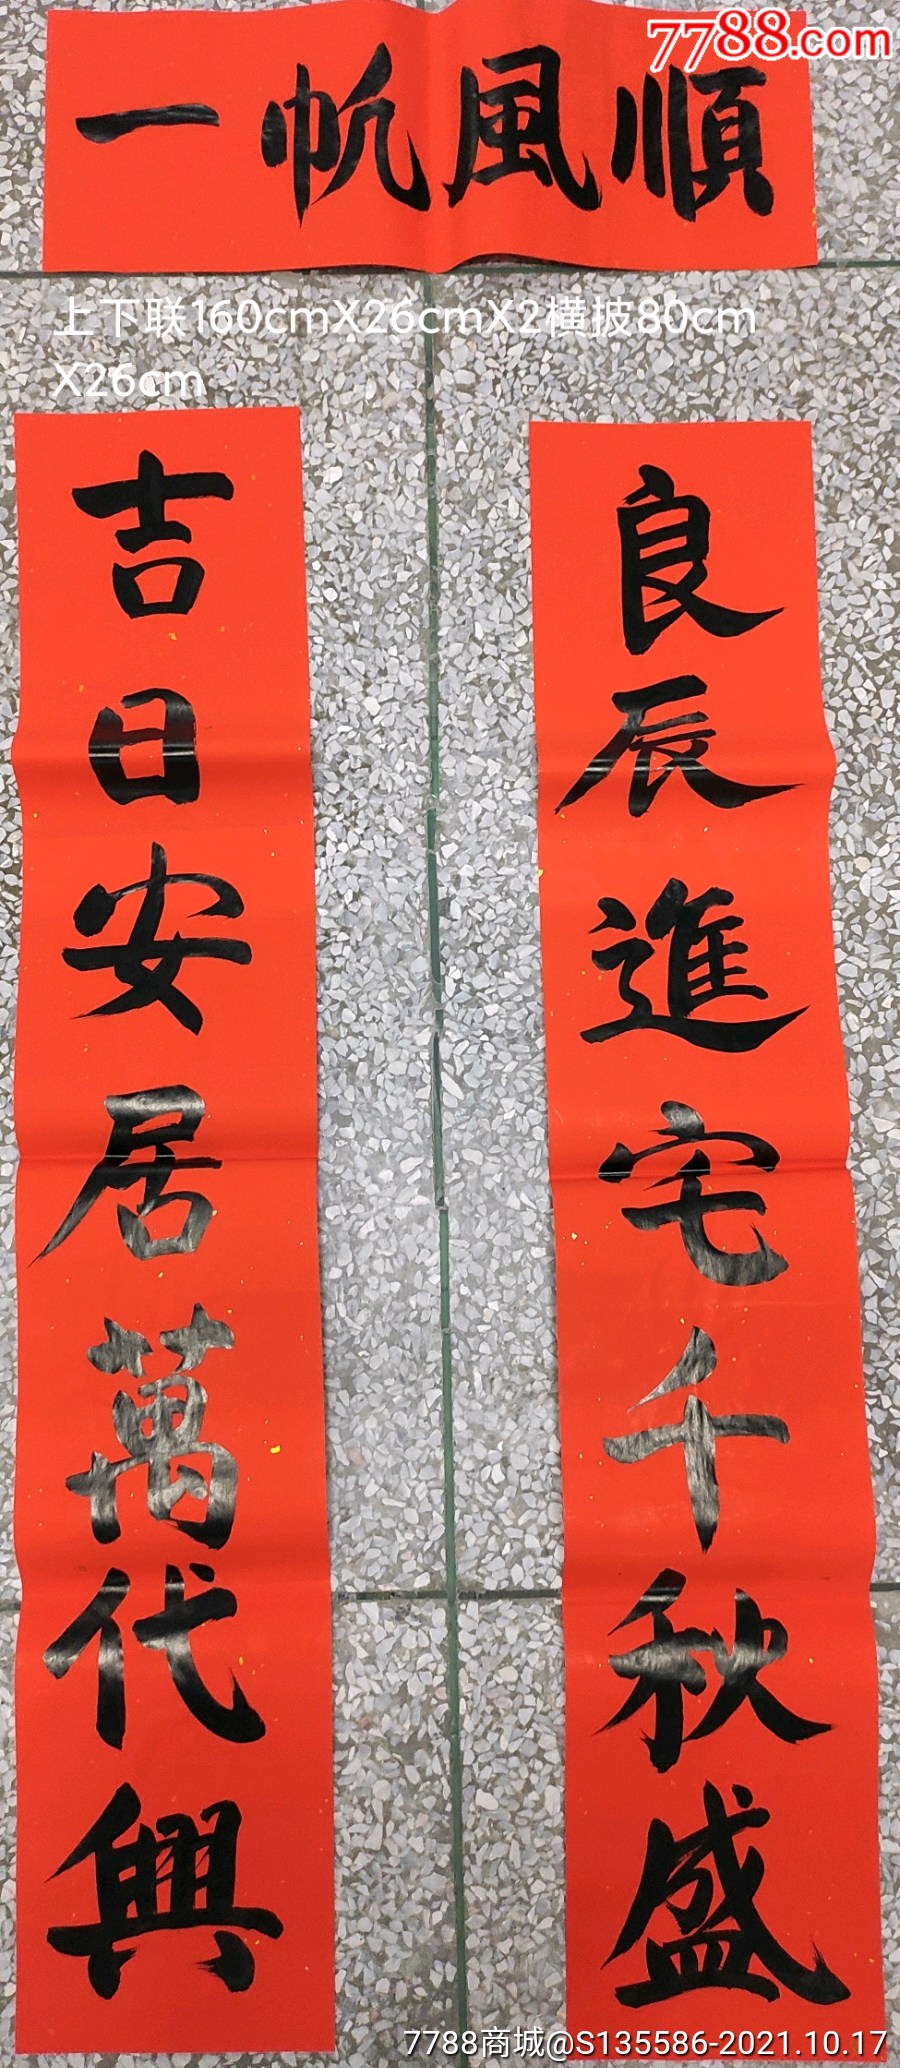 7788.com
一帆風順
上下联160cmX26cmX2横披80cm
X26cm
吉日安居萬代興
良辰進宅千秋盛
7788商城@S135586-2021.10.17